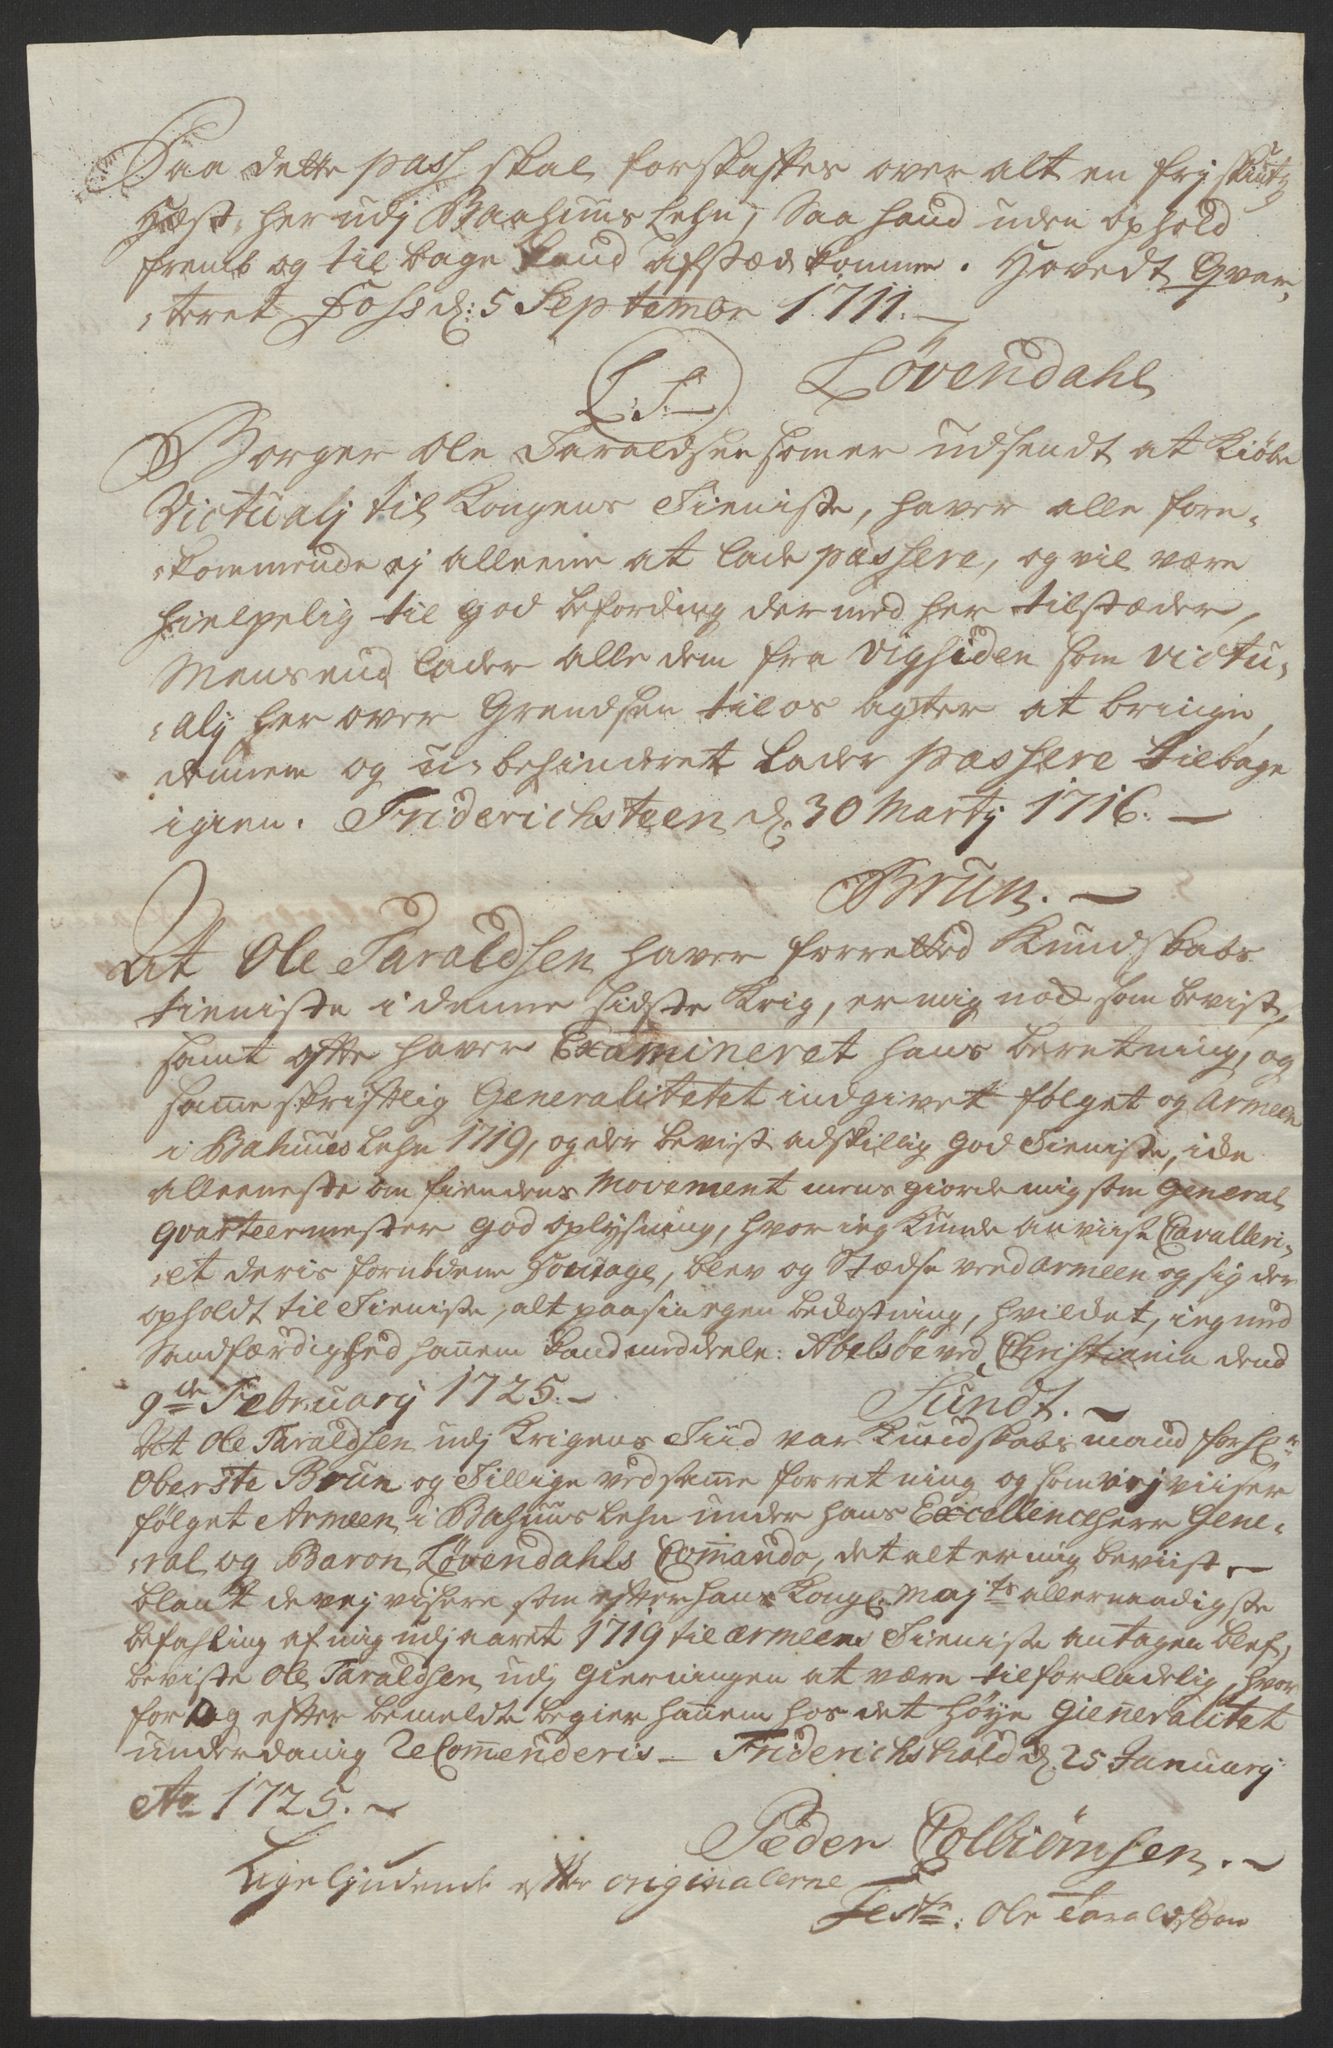 Paa dette pass skal forskaffes over alt en frj skiutz
Hæst, her udj Baahuus Lehn, Saa hand uden ophold
fremb og til bage kand afsted komme. Hovedt Qvar,
,teret Foss d: 5 Septembr 1711.
L.S. Løvendahl
Borger Ole Taraldsen som er udsendt at Kiøbe
Victualj til Kongens Tieniste, haver alle fore,
,kommende ej alleene at lade passere, og vil være
hielpelig til god befording der med her tilstæder,
Mens end lader alle dem fra Vigsiden som victu,
,alj her over Grendsen til os agter at bringe,
dennem og u-behindret lader passere tilbage
igien. Friderichsteen d. 30 Martj 1716.
Brun.
At Ole Taraldsen haver forretted Kundskabs
tieniste i denne sidste Krig, er mig nok som bevist,
samt ofte haver Examineret hans beretning, og
samme skriftlig Generalitetet indgivet følget og Armeen
i Bahuus Lehn 1719, og der bevist adskillig god Tieniste, icke
alleeneste om fiendens Movement mens giorde mig som General
qvarteermester god oplysning, hvor ieg kunde anvise Cavalleri,
,et deris fornødene Fourage, blev og Stædse ved Armeen og sig der
opholdt til Tieniste, alt paa sin egen bekostning, hvilket, ieg med
Sandfærdighed hannem kand meddeele: Abelsøe ved Christiania dend
9de Februarij 1725.
Sundt.
At Ole Taraldsen udj Krigens Tiid var Kundskabs mand for Hr
Oberste Brun og Tillige ved samme forretning og som vejviiser
følget Armeen i Bahuus Lehn under hans Excellence Herr Gene,
,ral og Baron Løvendahls Commando, det alt er mig beviist
blant de vejvisere som efter hans Kongl. Majts allernaadigste
befahling af mig udj aaret 1719 til armeens Tieniste antagen blef,
beviste Ole Taraldsen udj gierningen at være tilforladelig, hvor
for Jeg efter bemeldte begier hannem hos det høye Gieneralitet
underdanig Recommenderis Friderichshald d. 25 Januarij
Ao 1725.
Peder Colbiørnsen.
Lige lydende efter originalerne
Test: Ole Taraldsøn